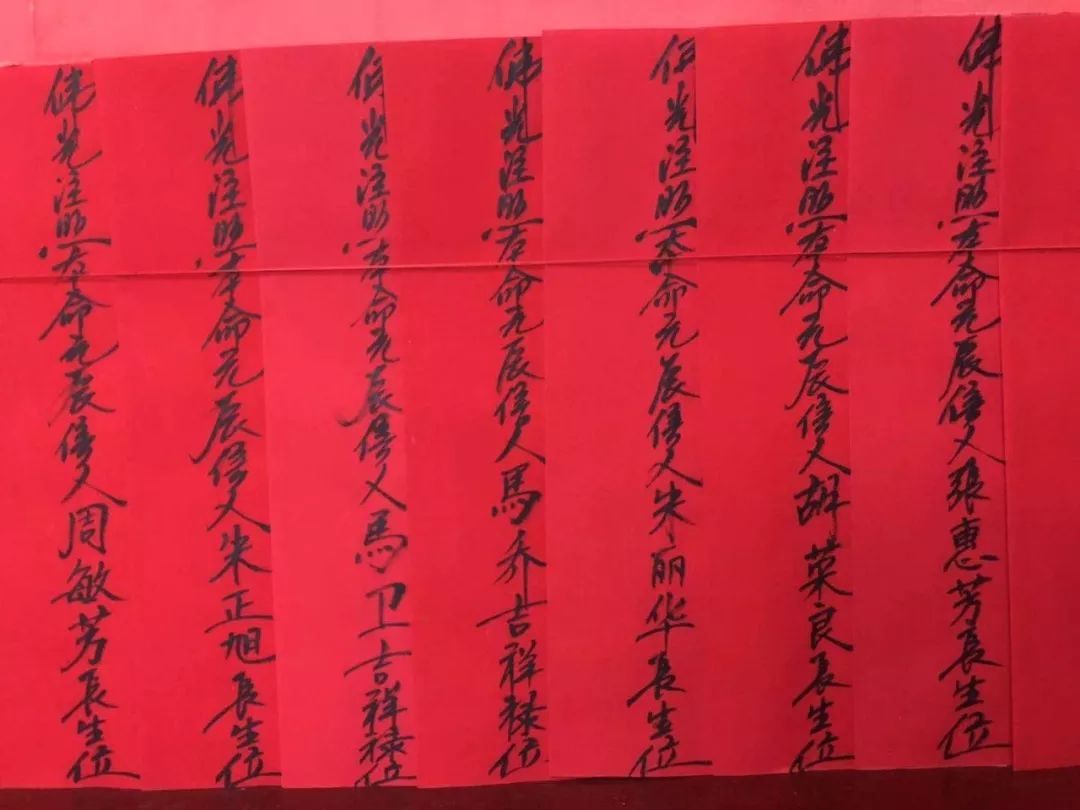 佛光注照本命元辰信人張惠芳長生位
佛光注照本命元辰信人胡荣良長生位
佛光注照本命元辰信人朱丽华長生位
佛光注照本命元辰信人馬乔吉祥禄位
佛光注照本命元辰信人馬卫吉祥禄位
佛光注照本命元辰信人朱正旭長生位
佛光注照本命元辰信人周敏芳長生位